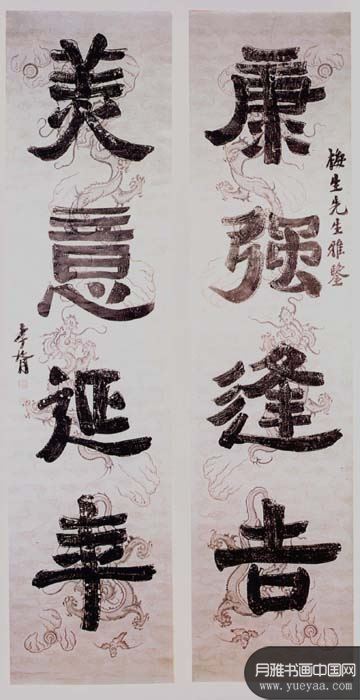 康强逢吉
梅生先生雅鑒
美意延年
月雅书画中国网
www.yueyaa.com